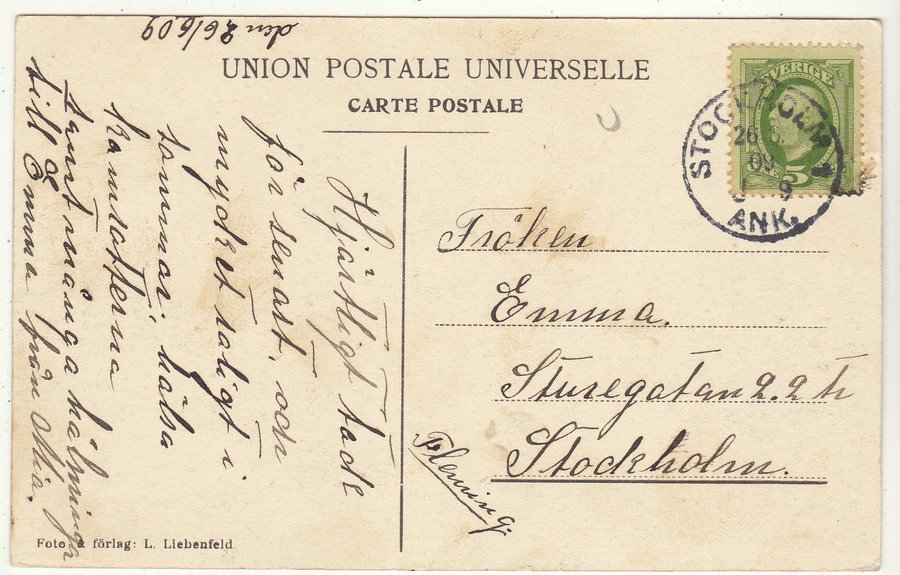 den 26/6 09
UNION POSTALE UNIVERSELLE
CARTE POSTALE
SVERIGE
5
STOCKHOLM 1
26 6
09
9
ANK.
Hjärtligt tack
för senast, och
mycket roligt i
sommar; hälsa
kamraterna
samt många hälsningar
till Emma från Mia.
Fröken
Emma.
Sturegatan 2. 2 tr
Stockholm.
Flemming.
Foto & förlag: L. Liebenfeld.